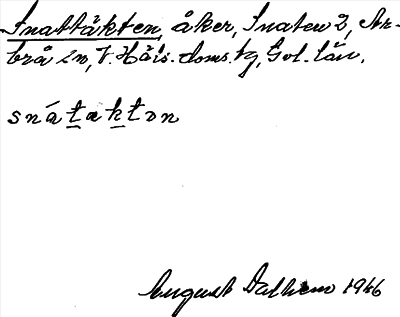 Snattäkten, åker, Snaten 2, Ar-
brå sn, V. Häls. doms. tg, Gvl. län.
snátaktən
August Dalhem 1946